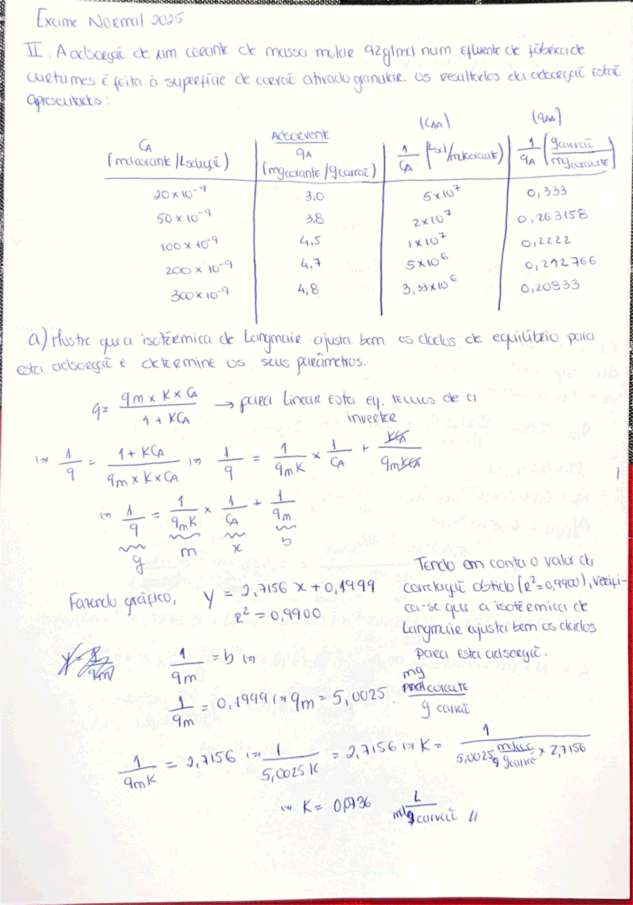 Exame Normal 2025
II. A adsorção de um corante de massa molar 92g/mol num efluente de fábrica de
curtumes é feita à superfície de carvão ativado granular. Os resultados da adsorção estão
apresentados:
Adsorvente (CAA) (qAA)
CA qA 1/CA (Lsol/molcorante) 1/qA (gcarvão/mgcorante)
(mol corante/Lsolução) (mgcorante/gcarvão)
20x10⁻⁹ 3,0 5x10⁷ 0,333
50x10⁻⁹ 3,8 2x10⁷ 0,263158
100x10⁻⁹ 4,5 1x10⁷ 0,2222
200x10⁻⁹ 4,7 5x10⁶ 0,212766
300x10⁻⁹ 4,8 3,33x10⁶ 0,20833
a) Mostre que a isotérmica de Langmuir ajusta bem os dados de equilíbrio para
esta adsorção e determine os seus parâmetros.
q = qm x K x CA / 1 + KCA → para linear esta eq. temos de a
inverter
⇔ 1/q = 1 + KCA / qm x K x CA ⇔ 1/q = 1/qmK x 1/CA + KCA/qmKCA
⇔ 1/q = 1/qmK x 1/CA + 1/qm
y m x b
Fazendo gráfico, y = 2,7156 x + 0,1999
R² = 0,9900
Tendo em conta o valor da
correlação obtido (R²=0,9900), verifi-
ca-se que a isotérmica de
Langmuir ajusta bem os dados
para esta adsorção.
1/qm = b ⇔
1/qm = 0,1999 ⇔ qm = 5,0025 mg corante / g carvão
1/qmK = 2,7156 ⇔ 1/5,0025K = 2,7156 ⇔ K = 1 / 5,0025 x 2,7156
⇔ K = 0,0736 L //